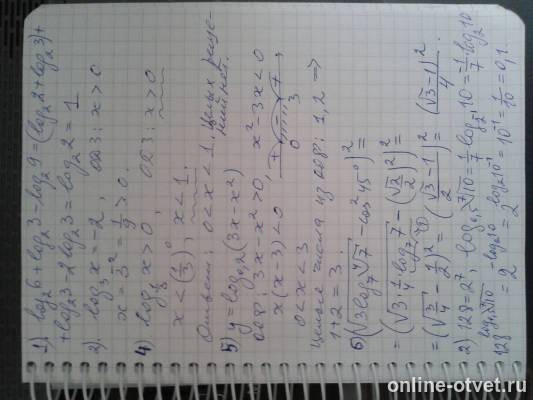 1) log₂6 + log₂3 - log₂9 = (log₂2 + log₂3) +
+ log₂3 - 2log₂3 = log₂2 = 1
2) log₃x = -2, ОДЗ: x > 0
x = 3⁻² = 1/9 > 0.
4) log_{1/3} x > 0, ОДЗ: x > 0
x < (1/3)⁰, x < 1.
Ответ: 0 < x < 1. Целых решений нет.
5) y = log₀,₂(3x - x²)
ООФ: 3x - x² > 0, x² - 3x < 0
x(x - 3) < 0 + - + 0 3
0 < x < 3
Целые числа из ООФ: 1, 2 ⇒
1 + 2 = 3
6) (√3 log₇ ⁴√7 - cos² 45°)² =
= (√3 · 1/4 log₇ 7 - (√2/2)²)² =
= (√3/4 - 1/2)² = (√3 - 1/2)² = (√3 - 1)²/4
2) 128 = 2⁷, ⁷√10 = 1/7 log 10 = -1/7 · log₂10
128 = 2 = 2 = 10⁻¹ = 1/10 = 0,1.
online-otvet.ru